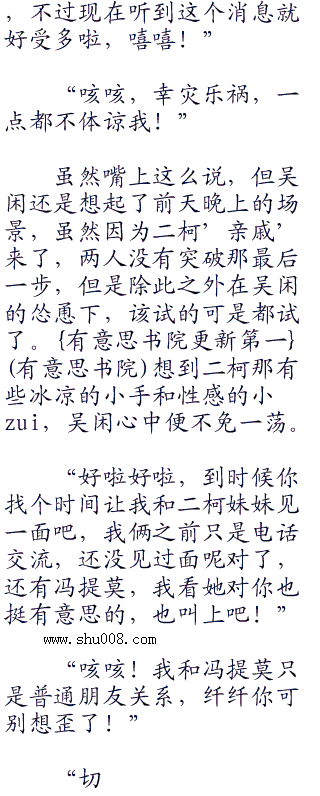 ，不过现在听到这个消息就
好受多啦，嘻嘻！”
“咳咳，幸灾乐祸，一
点都不体谅我！”
虽然嘴上这么说，但吴
闲还是想起了前天晚上的场
景，虽然因为二柯’亲戚’
来了，两人没有突破那最后
一步，但是除此之外在吴闲
的怂恿下，该试的可是都试
了。{有意思书院更新第一}
(有意思书院)想到二柯那有
些冰凉的小手和性感的小
zui，吴闲心中便不免一荡。
“好啦好啦，到时候你
找个时间让我和二柯妹妹见
一面吧，我俩之前只是电话
交流，还没见过面呢对了，
还有冯提莫，我看她对你也
挺有意思的，也叫上吧！”
www.shu008.com
“咳咳！我和冯提莫只
是普通朋友关系，纤纤你可
别想歪了！”
“切